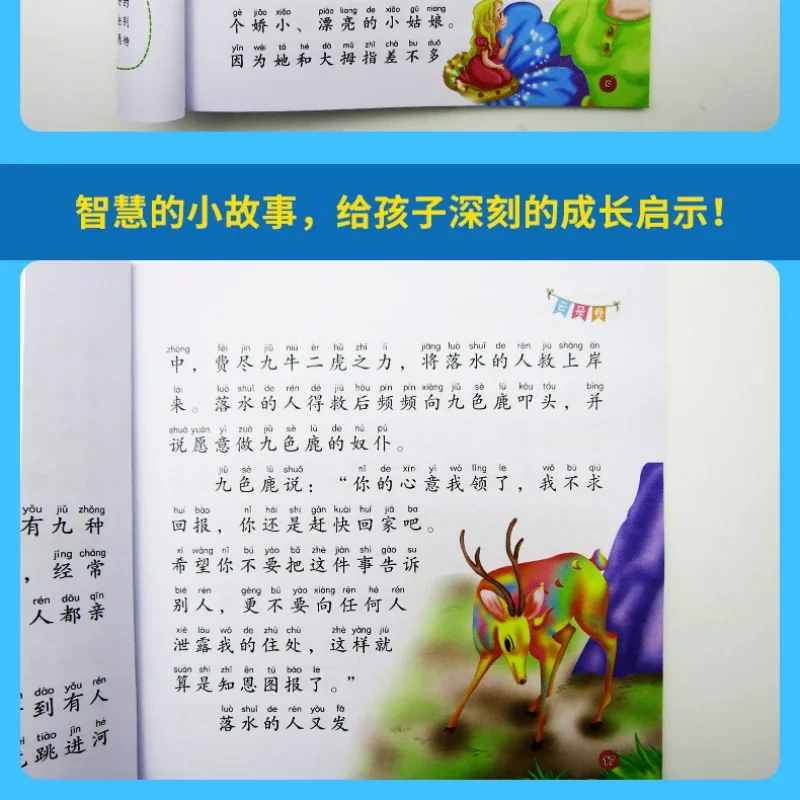 gè jiāo xiǎo piào liang de xiǎo gū niang
个娇小、漂亮的小姑娘。
yīn wèi tā hé dà mǔ zhǐ chà bu duō
因为她和大拇指差不多
智慧的小故事，给孩子深刻的成长启示！
云朵鱼
zhōng fèi jìn jiǔ niú èr hǔ zhī lì jiāng luò shuǐ de rén jiù shàng àn
中，费尽九牛二虎之力，将落水的人救上岸
lái luò shuǐ de rén dé jiù hòu pín pín xiàng jiǔ sè lù kòu tóu bìng
来。落水的人得救后频频向九色鹿叩头，并
shuō yuàn yì zuò jiǔ sè lù de nú pú
说愿意做九色鹿的奴仆。
jiǔ sè lù shuō nǐ de xīn yì wǒ lǐng le wǒ bù qiú
九色鹿说：“你的心意我领了，我不求
huí bào nǐ hái shi gǎn kuài huí jiā ba
回报，你还是赶快回家吧。
xī wàng nǐ bú yào bǎ zhè jiàn shì gào su
希望你不要把这件事告诉
bié rén gèng bú yào xiàng rèn hé rén
别人，更不要向任何人
xiè lòu wǒ de zhù chù zhè yàng jiù
泄露我的住处，这样就
suàn shì zhī ēn tú bào le
算是知恩图报了。”
luò shuǐ de rén yòu fā
落水的人又发
17
yǒu jiǔ zhǒng
有九种
jīng cháng
，经常
rén dōu qīn
人都亲
dào yǒu rén
到有人
tiào jìn hé
跳进河